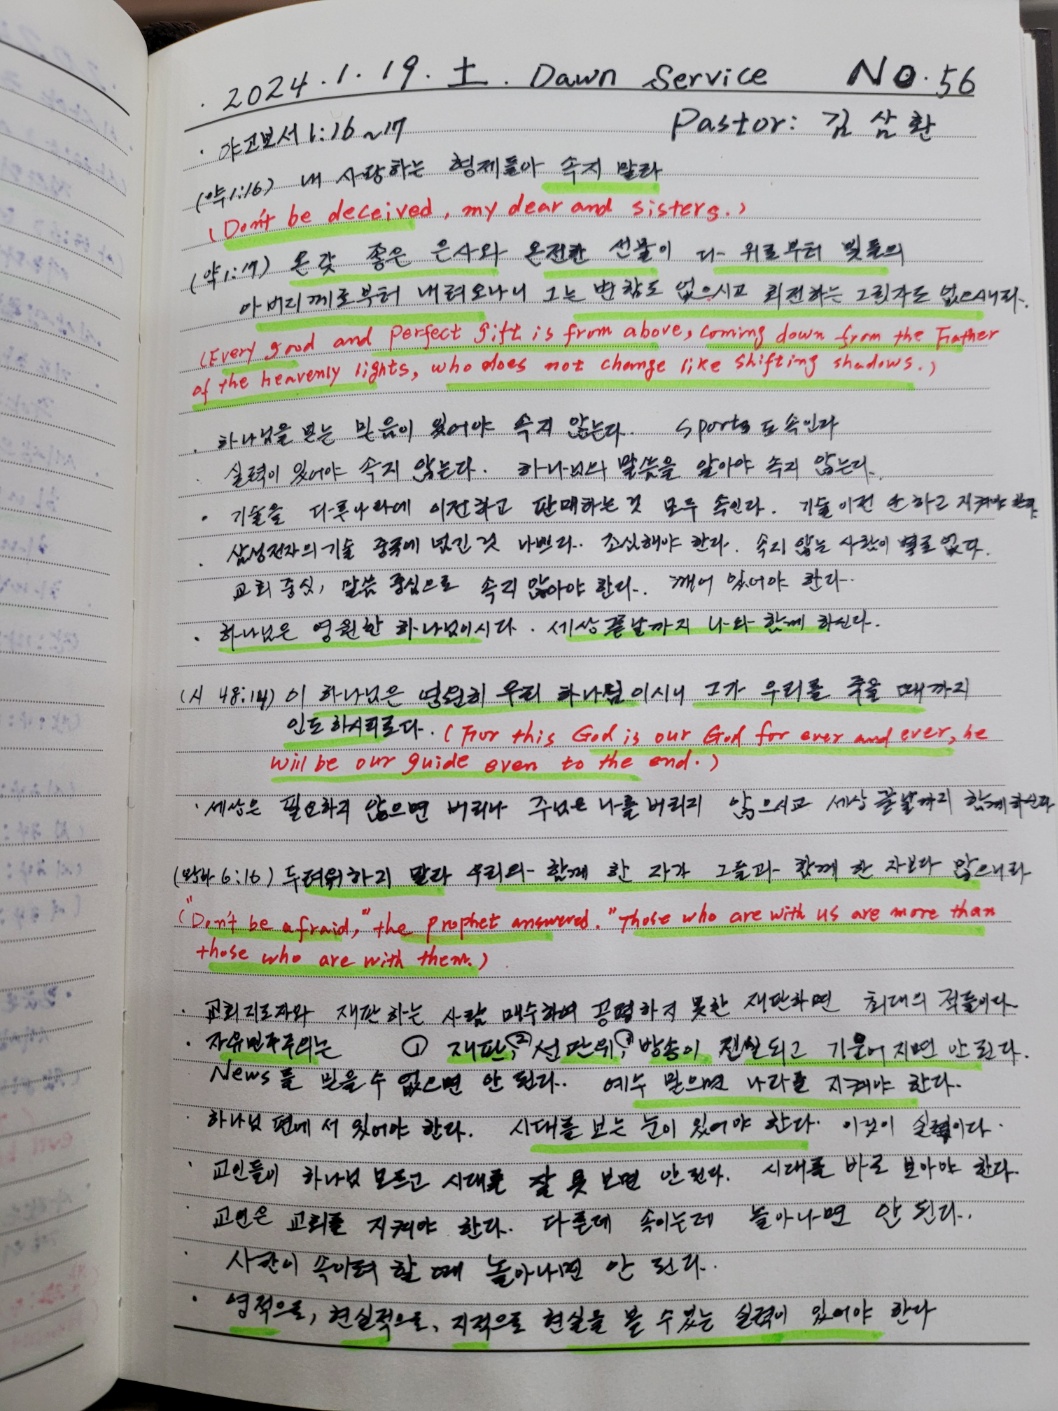 · 2024.1.19.土. Dawn Service No.56
· 야고보서 1:16~17 Pastor: 김삼환
(약1:16) 내 사랑하는 형제들아 속지 말라
(Don't be deceived, my dear and sisters.)
(약1:17) 온갖 좋은 은사와 온전한 선물이 다 위로부터 빛들의
아버지께로부터 내려오나니 그는 변함도 없으시고 회전하는 그림자도 없으시니라.
(Every good and perfect gift is from above, coming down from the Father
of the heavenly lights, who does not change like shifting shadows.)
· 하나님을 믿는 믿음이 있어야 속지 않는다. Sports도 속인다
실력이 있어야 속지 않는다. 하나님의 말씀을 알아야 속지 않는다.
· 기술을 다른나라에 이전하고 판매하는 것 모두 속인다. 기술이전 안 하고 지켜야
· 삼성전자의 기술 중국에 넘긴 것 나쁘다. 조심해야 한다. 속지 않는 사람이 별로 없다.
교회 중심, 말씀 중심으로 속지 않아야 한다. 깨어 있어야 한다.
· 하나님은 영원한 하나님이시다. 세상 끝날까지 나와 함께 하신다.
(시 48:14) 이 하나님은 영원히 우리 하나님이시니 그가 우리를 죽을 때까지
인도하시리로다. (For this God is our God for ever and ever, he
will be our guide even to the end.)
· 세상은 필요하지 않으면 버리나 주님은 나를 버리지 않으시고 세상 끝날까지 함께하신다
(왕하 6:16) 두려워하지 말라 우리와 함께 한 자가 그들과 함께 한 자보다 많으니라
("Don't be afraid," the prophet answered. "Those who are with us are more than
those who are with them.)
· 교회지도자와 재판하는 사람 매수하여 공평하지 못한 재판하면 최대의 적들이다.
· 자유민주주의는 ① 재판, ② 선관위, ③ 방송이 진실되고 기울어지면 안 된다.
News를 믿을 수 없으면 안 된다. 예수 믿으면 나라를 지켜야 한다.
· 하나님 편에 서 있어야 한다. 시대를 보는 눈이 있어야 한다. 이것이 실력이다.
· 교인들이 하나님 모르고 시대를 잘 못 보면 안 된다. 시대를 바로 보아야 한다.
· 교인은 교회를 지켜야 한다. 다른데 속이는데 놀아나면 안 된다.
· 사탄이 속이려 할 때 놀아나면 안 된다.
· 영적으로, 현실적으로, 지적으로 현실을 볼 수 있는 실력이 있어야 한다